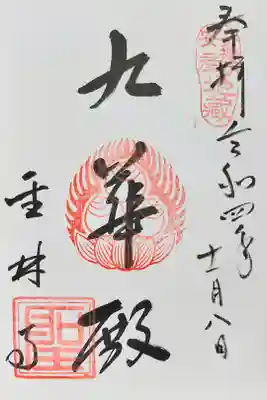 奉拝 令和四年
十一月八日
九華殿
聖林寺